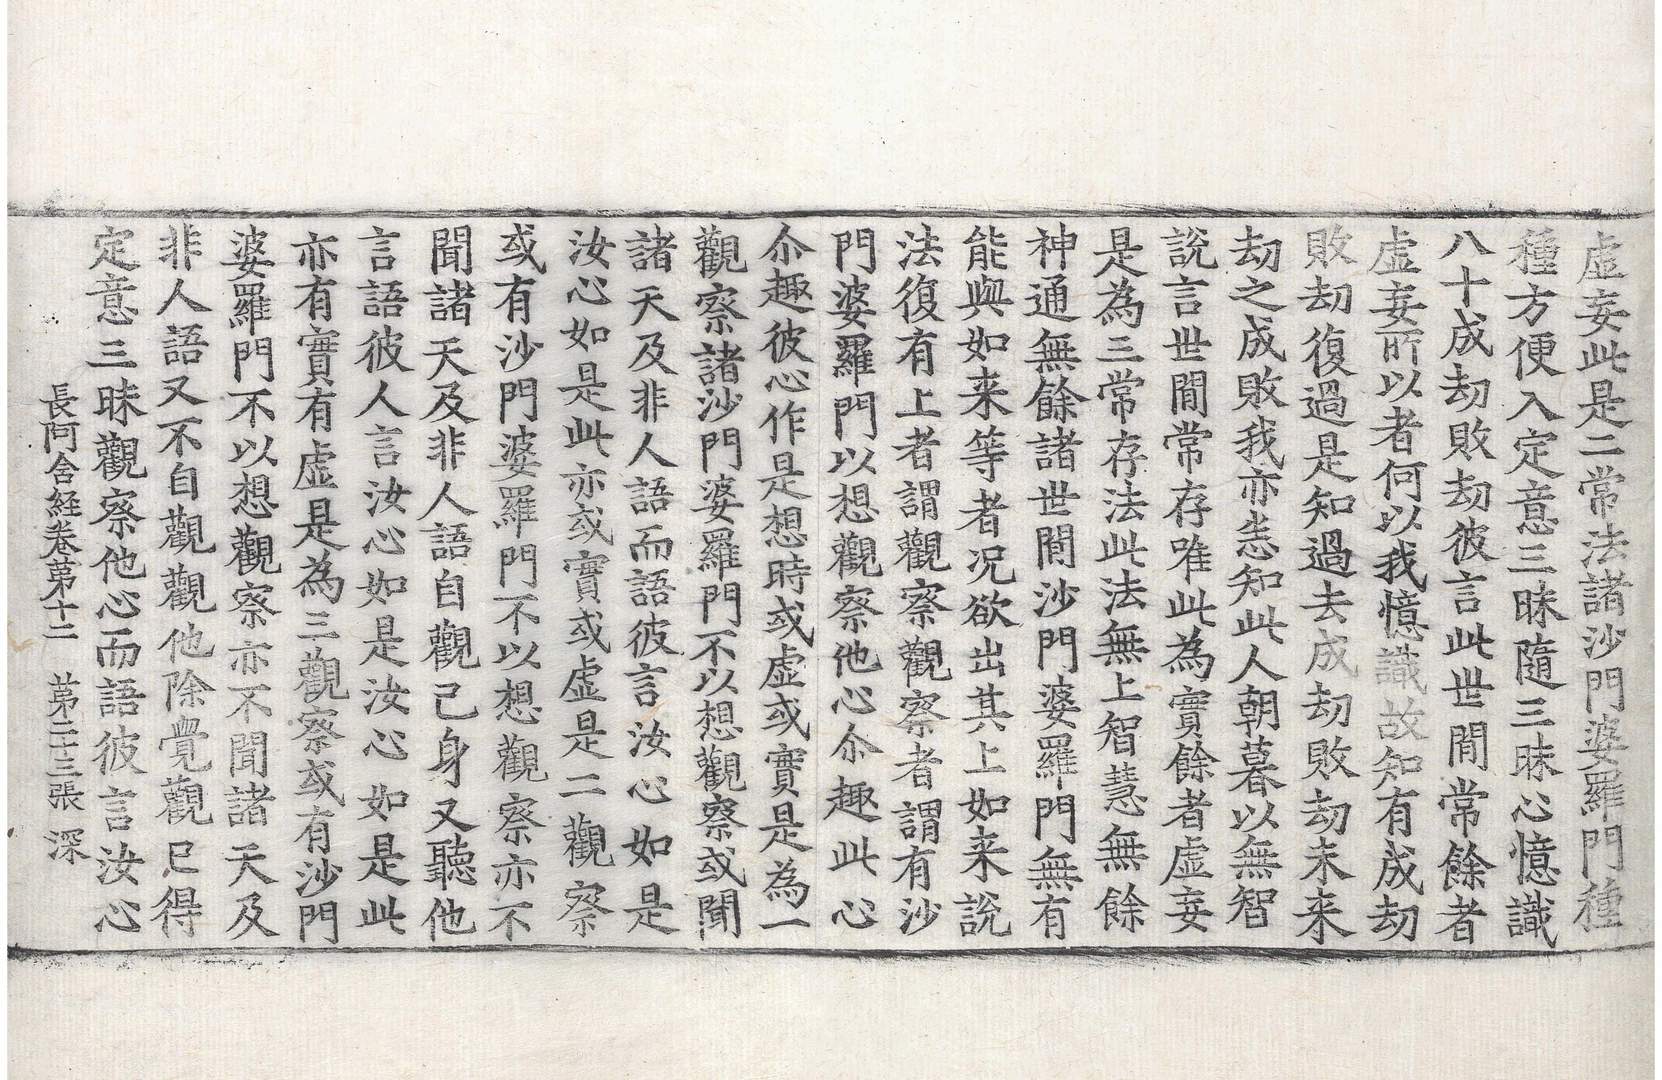 虛妄此是二常法諸沙門婆羅門種
種方便入定意三昧隨三昧心憶識
八十成劫敗劫彼言此世間常餘者
虛妄所以者何以我憶識故知有成劫
敗劫復過是知過去成劫敗劫未来
劫之成敗我亦悉知此人朝暮以無智
說言世間常存唯此為實餘者虛妄
是為三常存法此法無上智慧無餘
神通無餘諸世間沙門婆羅門無有
能與如来等者况欲出其上如来說
法復有上者謂觀察觀察者謂有沙
門婆羅門以想觀察他心尒趣此心
尒趣彼心作是想時或虛或實是為一
觀察諸沙門婆羅門不以想觀察或聞
諸天及非人語而語彼言汝心如是
汝心如是此亦或實或虛是二觀察
或有沙門婆羅門不以想觀察亦不
聞諸天及非人語自觀己身又聽他
言語彼人言汝心如是汝心如是此
亦有實有虛是為三觀察或有沙門
婆羅門不以想觀察亦不聞諸天及
非人語又不自觀觀他除覺觀已得
定意三昧觀察他心而語彼言汝心
長阿含経卷苐十二 苐二十三張 深